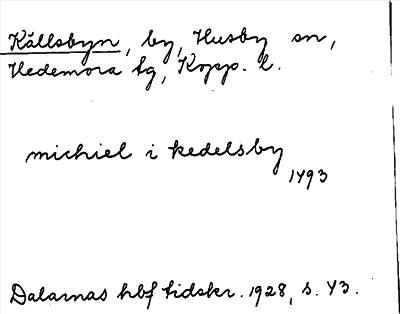 Kållsbyn, by, Husby sn,
Hedemora tg, Kopp. l.
michiel i kedelsby
1493
Dalarnas hbf tidskr. 1928, s. 43.